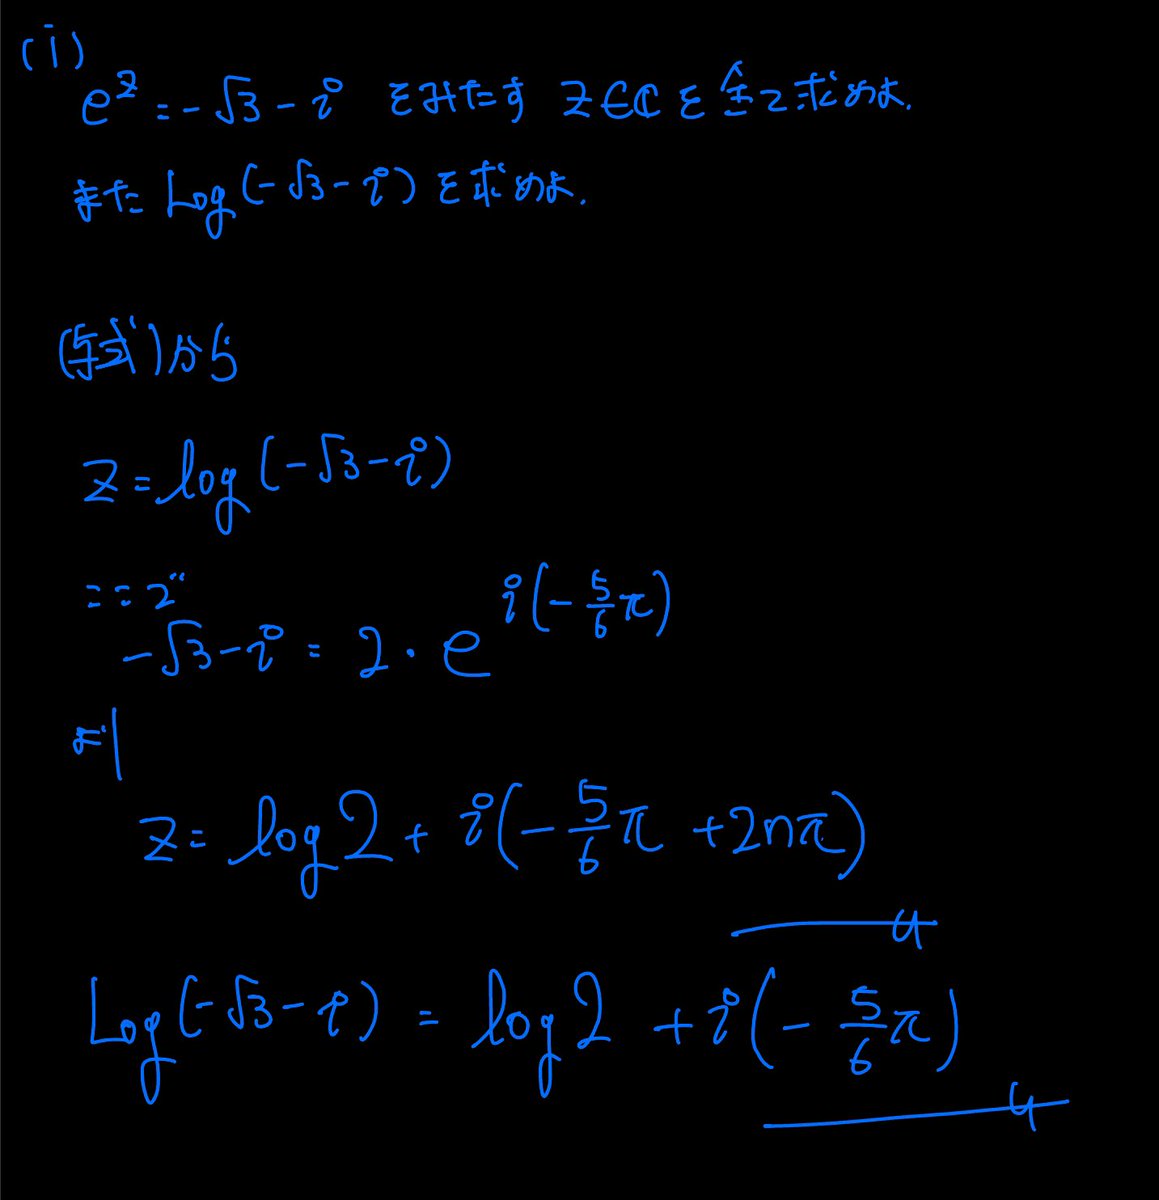 (i)
e^z = -√3 - i をみたす z∈ℂ を全て求めよ.
また Log(-√3-i) を求めよ.
(与式)から
z = log(-√3-i)
ここで
-√3-i = 2・e^{i(-5/6 π)}
より
z = log2 + i(-5/6 π + 2nπ)
Log(-√3-i) = log2 + i(-5/6 π)